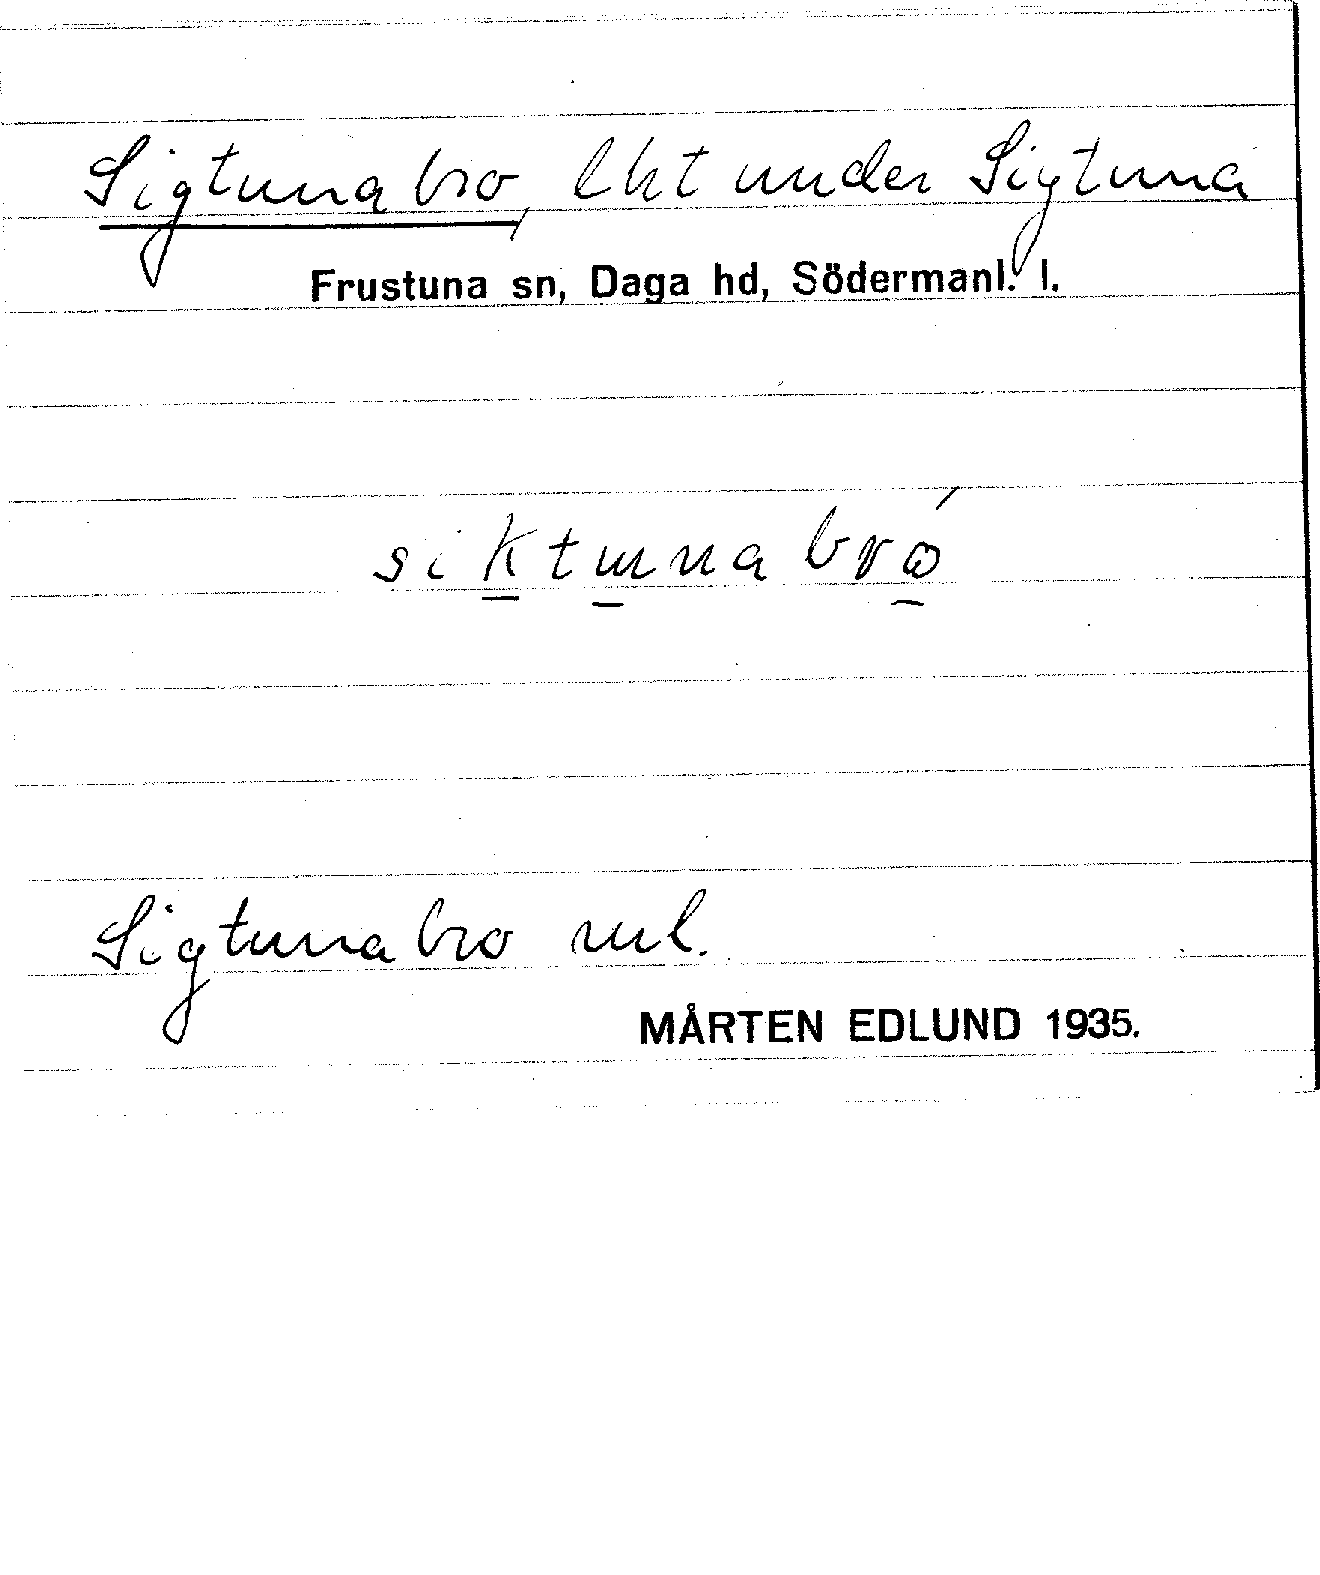 Sigtunabro, lht under Sigtuna
Frustuna sn, Daga hd, Södermanl. l.
siktunabró
Sigtunabro ml.
MÅRTEN EDLUND 1935.